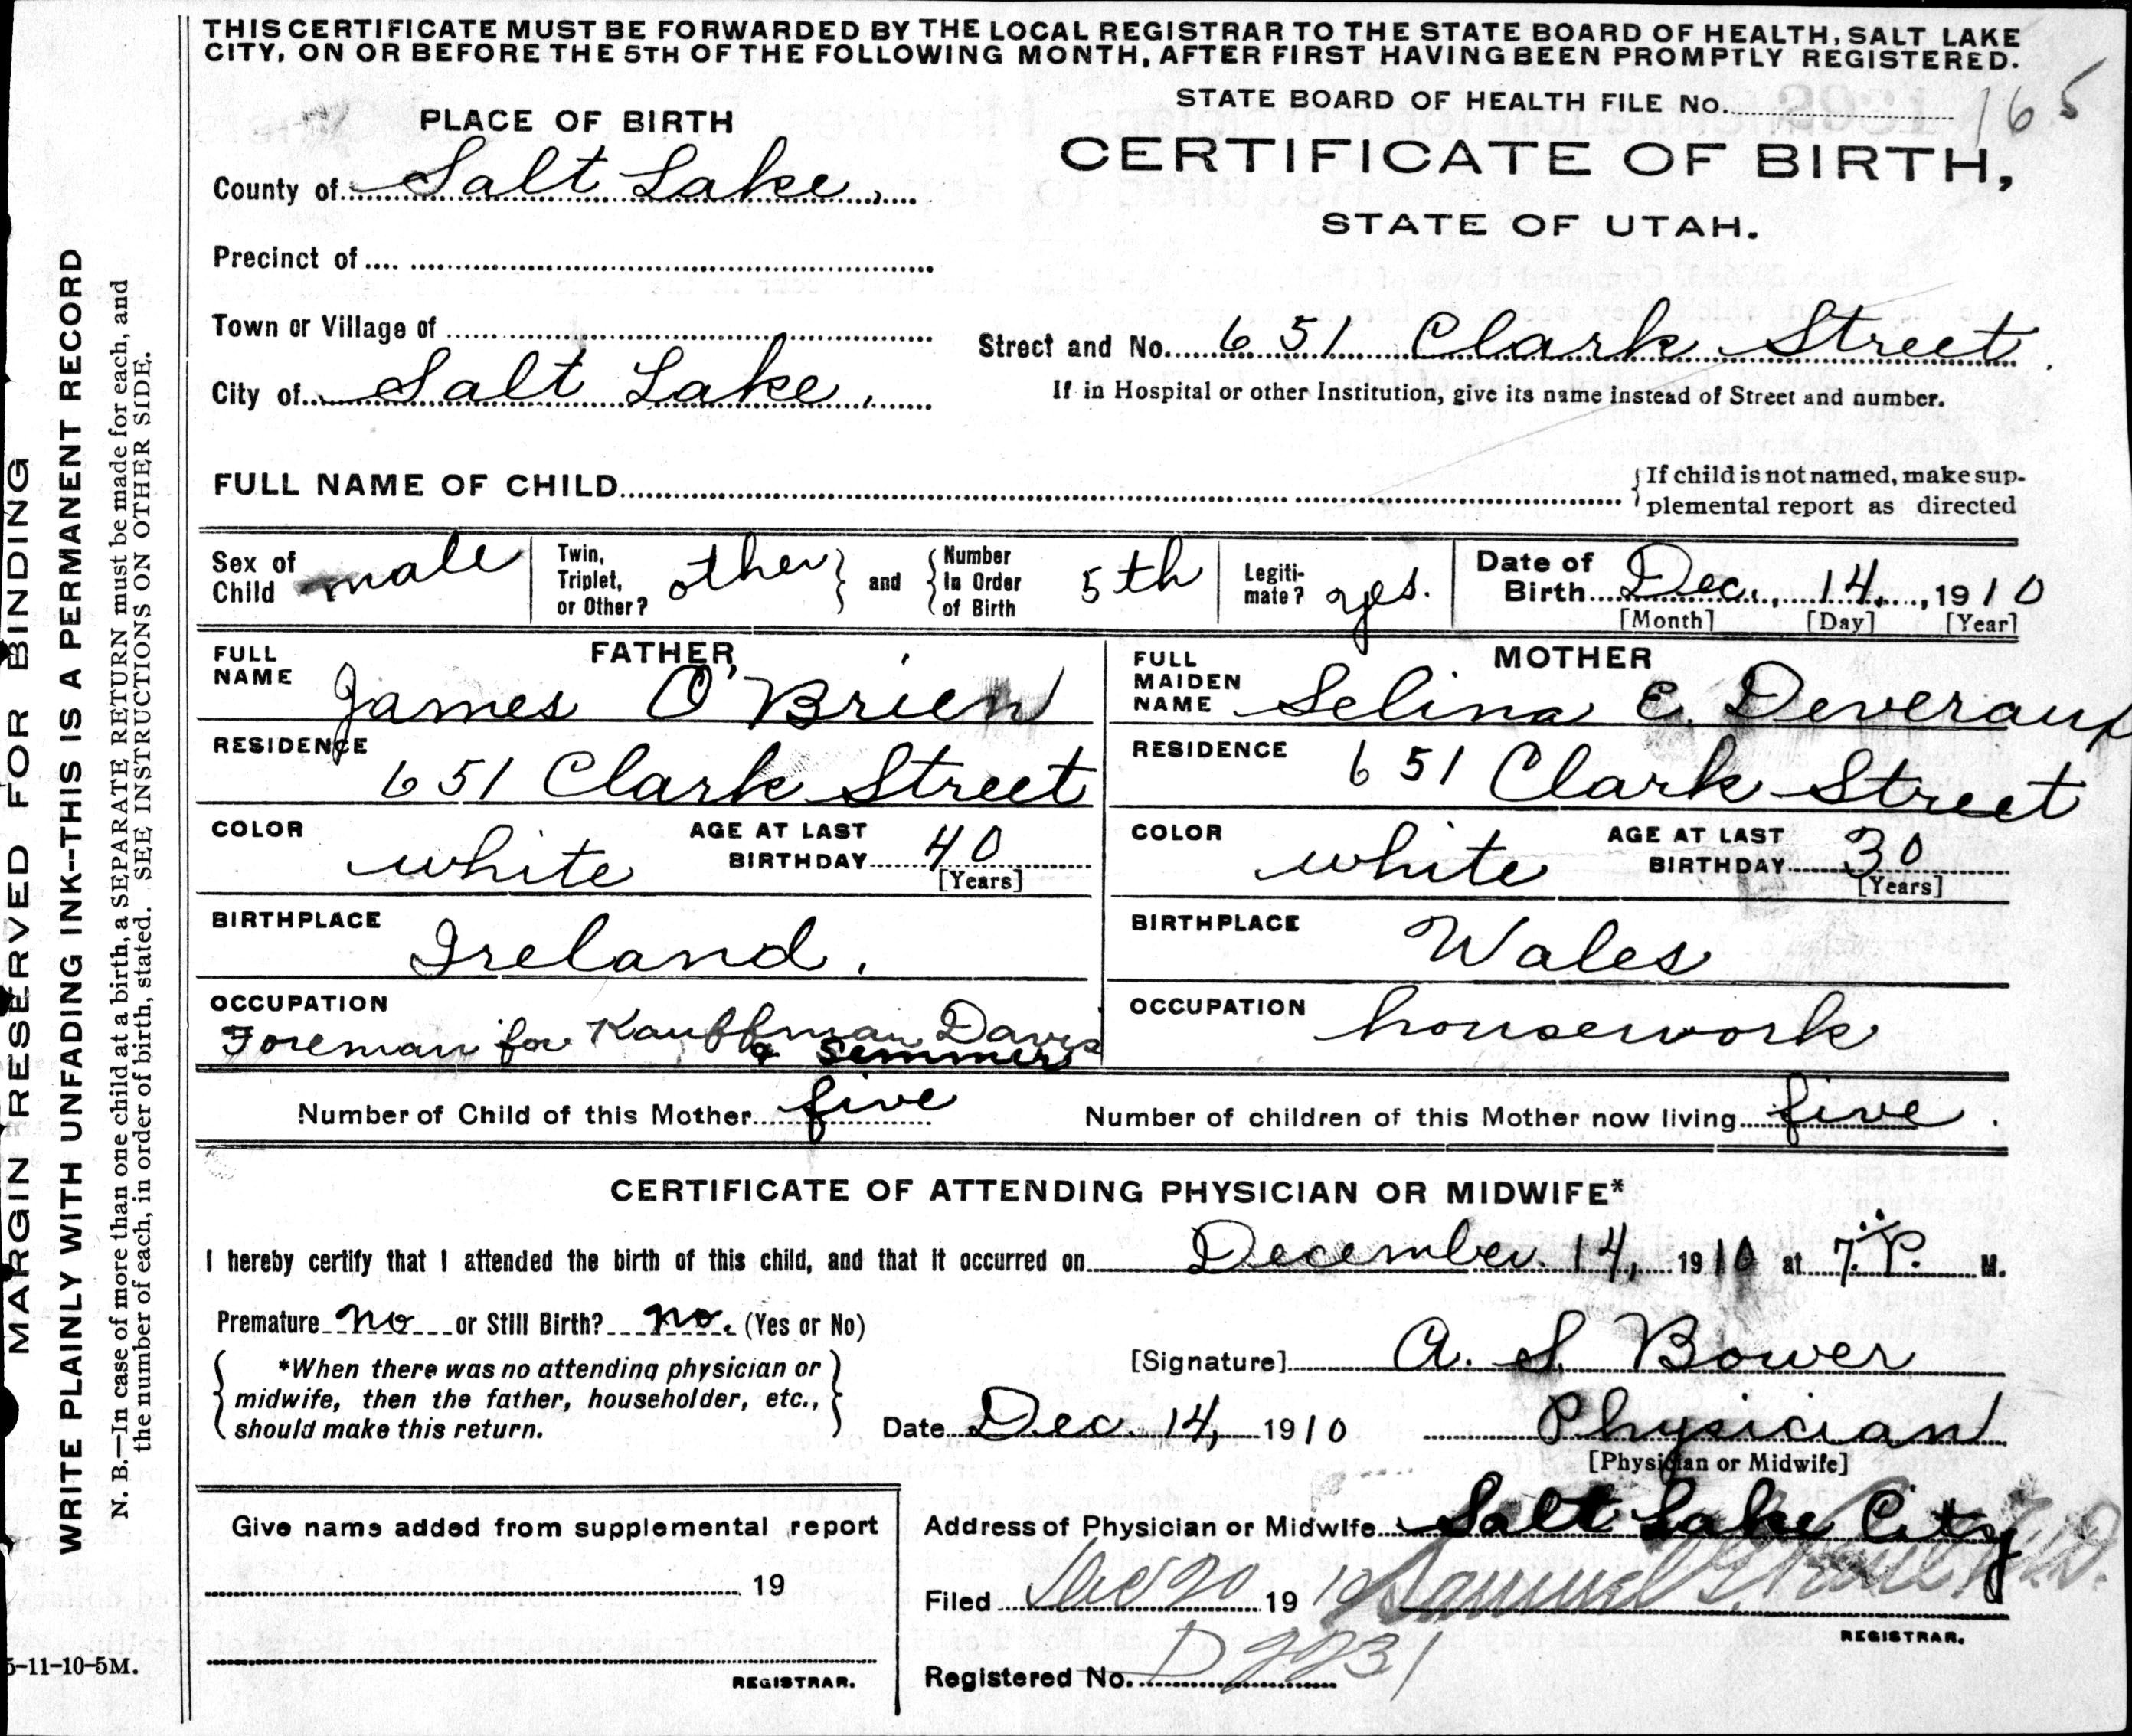 THIS CERTIFICATE MUST BE FORWARDED BY THE LOCAL REGISTRAR TO THE STATE BOARD OF HEALTH, SALT LAKE
CITY, ON OR BEFORE THE 5TH OF THE FOLLOWING MONTH, AFTER FIRST HAVING BEEN PROMPTLY REGISTERED.
STATE BOARD OF HEALTH FILE No. 165
PLACE OF BIRTH
CERTIFICATE OF BIRTH,
STATE OF UTAH.
County of Salt Lake.
Precinct of
Town or Village of
Street and No. 651 Clark Street.
City of Salt Lake.
If in Hospital or other Institution, give its name instead of Street and number.
FULL NAME OF CHILD
If child is not named, make sup-
plemental report as directed
Sex of Child male
Twin, Triplet, or Other? other and Number In Order of Birth 5th
Legiti-mate? yes.
Date of Birth Dec., 14, 1910
[Month] [Day] [Year]
FATHER
FULL NAME James O'Brien
RESIDENCE 651 Clark Street
COLOR white AGE AT LAST BIRTHDAY 40
[Years]
BIRTHPLACE Ireland.
OCCUPATION
Foreman for Kauffman Davis
& Semmers
MOTHER
FULL MAIDEN NAME Selina E. Deveraux
RESIDENCE 651 Clark Street
COLOR white AGE AT LAST BIRTHDAY 30
[Years]
BIRTHPLACE Wales
OCCUPATION housework
Number of Child of this Mother five Number of children of this Mother now living five.
CERTIFICATE OF ATTENDING PHYSICIAN OR MIDWIFE*
I hereby certify that I attended the birth of this child, and that it occurred on December 14, 1910 at 7. P. M.
Premature no or Still Birth? no. (Yes or No)
*When there was no attending physician or
midwife, then the father, householder, etc.,
should make this return.
[Signature] A. S. Bower
Date Dec. 14, 1910 Physician
[Physician or Midwife]
Address of Physician or Midwife Salt Lake City
Give name added from supplemental report
19
REGISTRAR.
Filed Dec 20 1910 Samuel G. Paul M.D.
REGISTRAR.
Registered No. D2231
MARGIN RESERVED FOR BINDING
WRITE PLAINLY WITH UNFADING INK--THIS IS A PERMANENT RECORD
N. B.—In case of more than one child at a birth, a SEPARATE RETURN must be made for each, and
the number of each, in order of birth, stated. SEE INSTRUCTIONS ON OTHER SIDE.
5-11-10-5M.